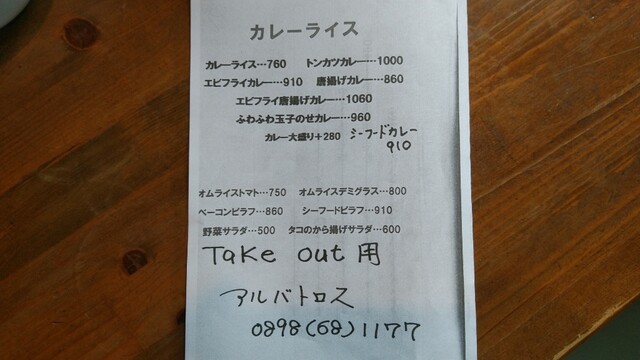 カレーライス
カレーライス…760 トンカツカレー…1000
エビフライカレー…910 唐揚げカレー…860
エビフライ唐揚げカレー…1060
ふわふわ玉子のせカレー…960
カレー大盛り+280 シーフードカレー
910
オムライストマト…750 オムライスデミグラス…800
ベーコンピラフ…860 シーフードピラフ…910
野菜サラダ…500 タコのから揚げサラダ…600
Take out 用
アルバトロス
0898(68)1177